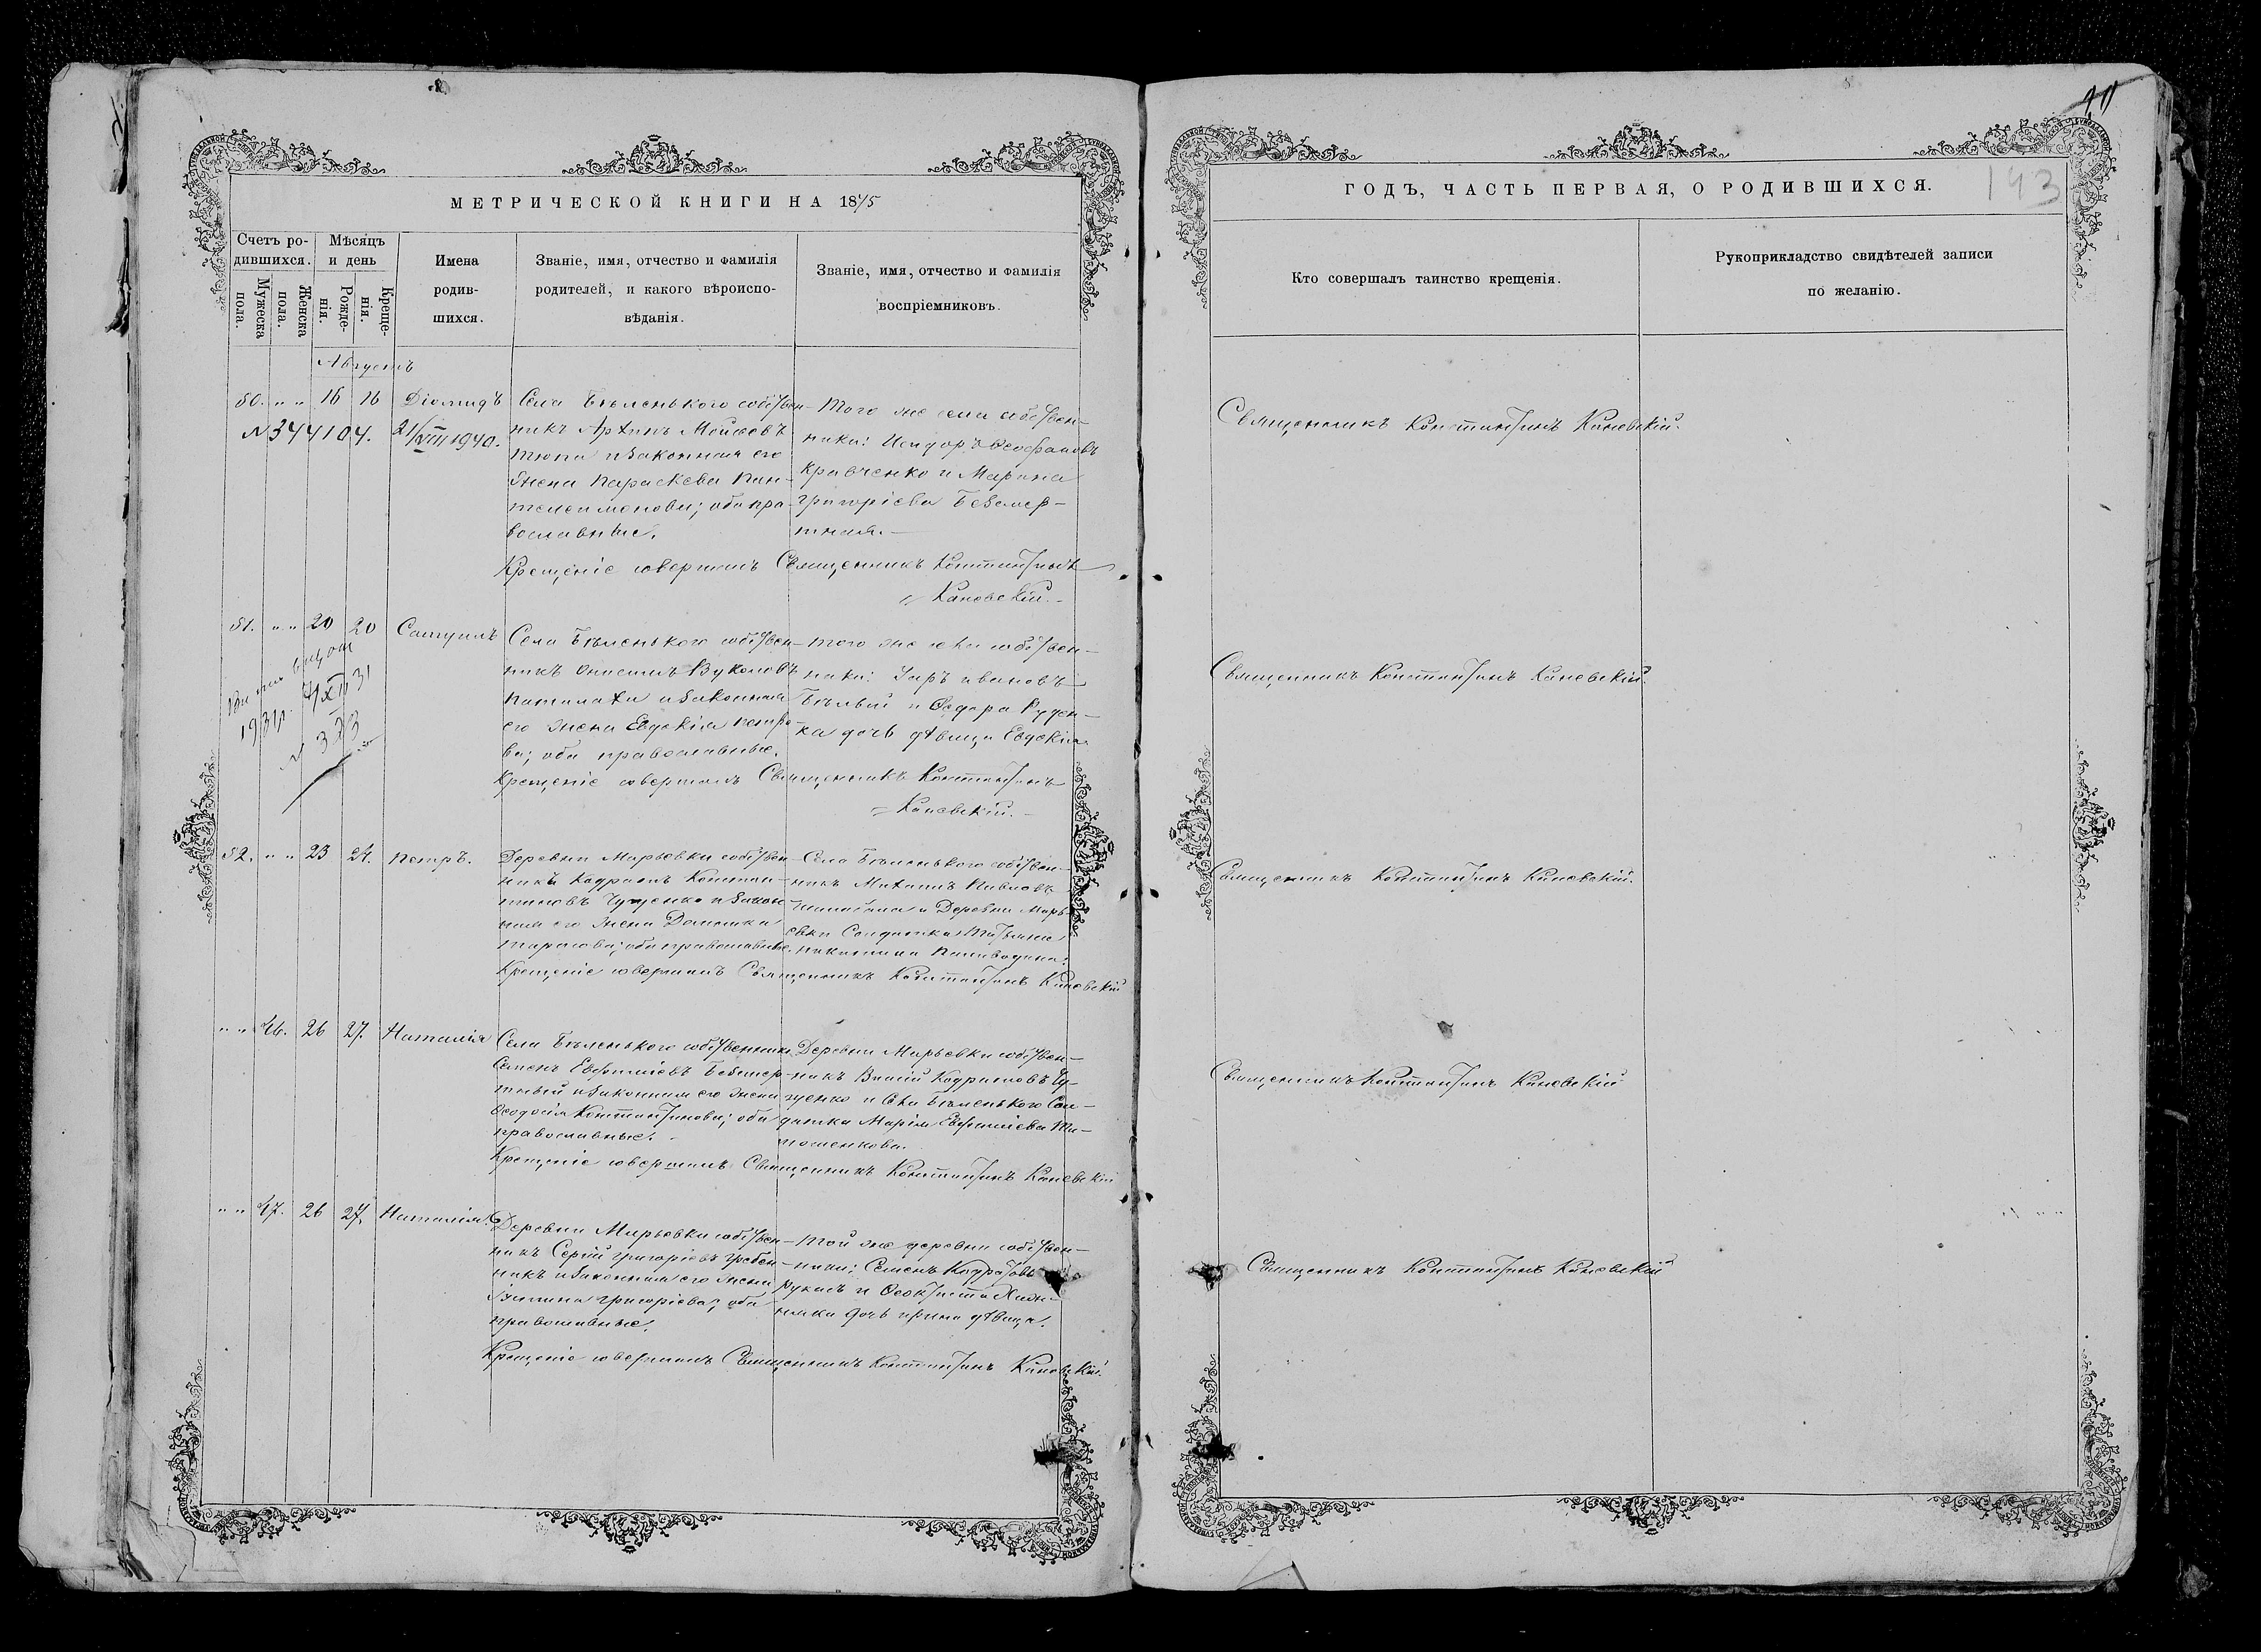 МЕТРИЧЕСКОЙ КНИГИ НА 18
Счетъ ро-
дившихся.
Мужеска пола.
Женска пола.
Мѣсяцъ
и день
Рожде-
нія.
Креще-
нія.
Имена
родив-
шихся.
Званіе, имя, отчество и фамилія
родителей, и какого вѣроиспо-
вѣданія.
Званіе, имя, отчество и фамилія
воспріемниковъ.
Августъ
50. " " 16 16 Діомидъ
N 344104. 21/VIII 1940.
Села Бѣленького собствен-
никъ Архипъ Моисеевъ
Тюпа и законная его
жена Параскева Пан-
телеимонова; оба пра-
вославные.
Того же села собствен-
ники: Исидоръ Феофановъ
Кравченко и Марина
Григоріева Безсмер-
тная.
Крещеніе совершалъ Священникъ Константинъ
Каневскій.
51. " " 20 20
1931г.
N 333
Села Бѣленького собствен-
никъ Онисимъ Вуколовъ
и законная
его жена Евдокія Петро-
ва; оба православные.
Того же села собствен-
ники: Ивановъ
Бѣлый и Федора Руден-
ка дочь дѣвица Евдокія
Крещеніе совершалъ Священникъ Константинъ
Каневскій.
52. " " 23 24. Петръ.
Деревни Марьевки собствен-
никъ Кодратъ Констан-
тиновъ и закон-
ная его жена Домникія
Тарасова; оба православные.
Села Бѣленького собствен-
никъ Михаилъ Павловъ
и Деревни Марь-
евки Солдатка Татьяна
Никитина
Крещеніе совершалъ Священникъ Константинъ Каневскій
" " 46. 26 27. Наталія
Села Бѣленького собственникъ
Семенъ Евфиміевъ Безсмер-
тный и законная его жена
Феодосія Константинова; оба
православные.
Деревни Марьевки собствен-
никъ Кодратовъ
и Села Бѣленького Сол-
датка Марія Евфиміева Ти-
мошенкова.
Крещеніе совершалъ Священникъ Константинъ Каневскій
" " 47. 26 27. Наталія.
Деревни Марьевки собствен-
никъ Сергій Григоріевъ Гребен-
никъ и законная его жена
Григоріева; оба
православные.
Той же деревни собствен-
ники: Семенъ Кодратовъ
и Феоктиста
дочь Ирина дѣвица.
Крещеніе совершалъ Священникъ Константинъ Каневскій.
ГОДЪ, ЧАСТЬ ПЕРВАЯ, О РОДИВШИХСЯ.
143
Кто совершалъ таинство крещенія.
Рукоприкладство свидѣтелей записи
по желанію.
Священникъ Константинъ Каневскій.
Священникъ Константинъ Каневскій.
Священникъ Константинъ Каневскій.
Священникъ Константинъ Каневскій
Священникъ Константинъ Каневскій